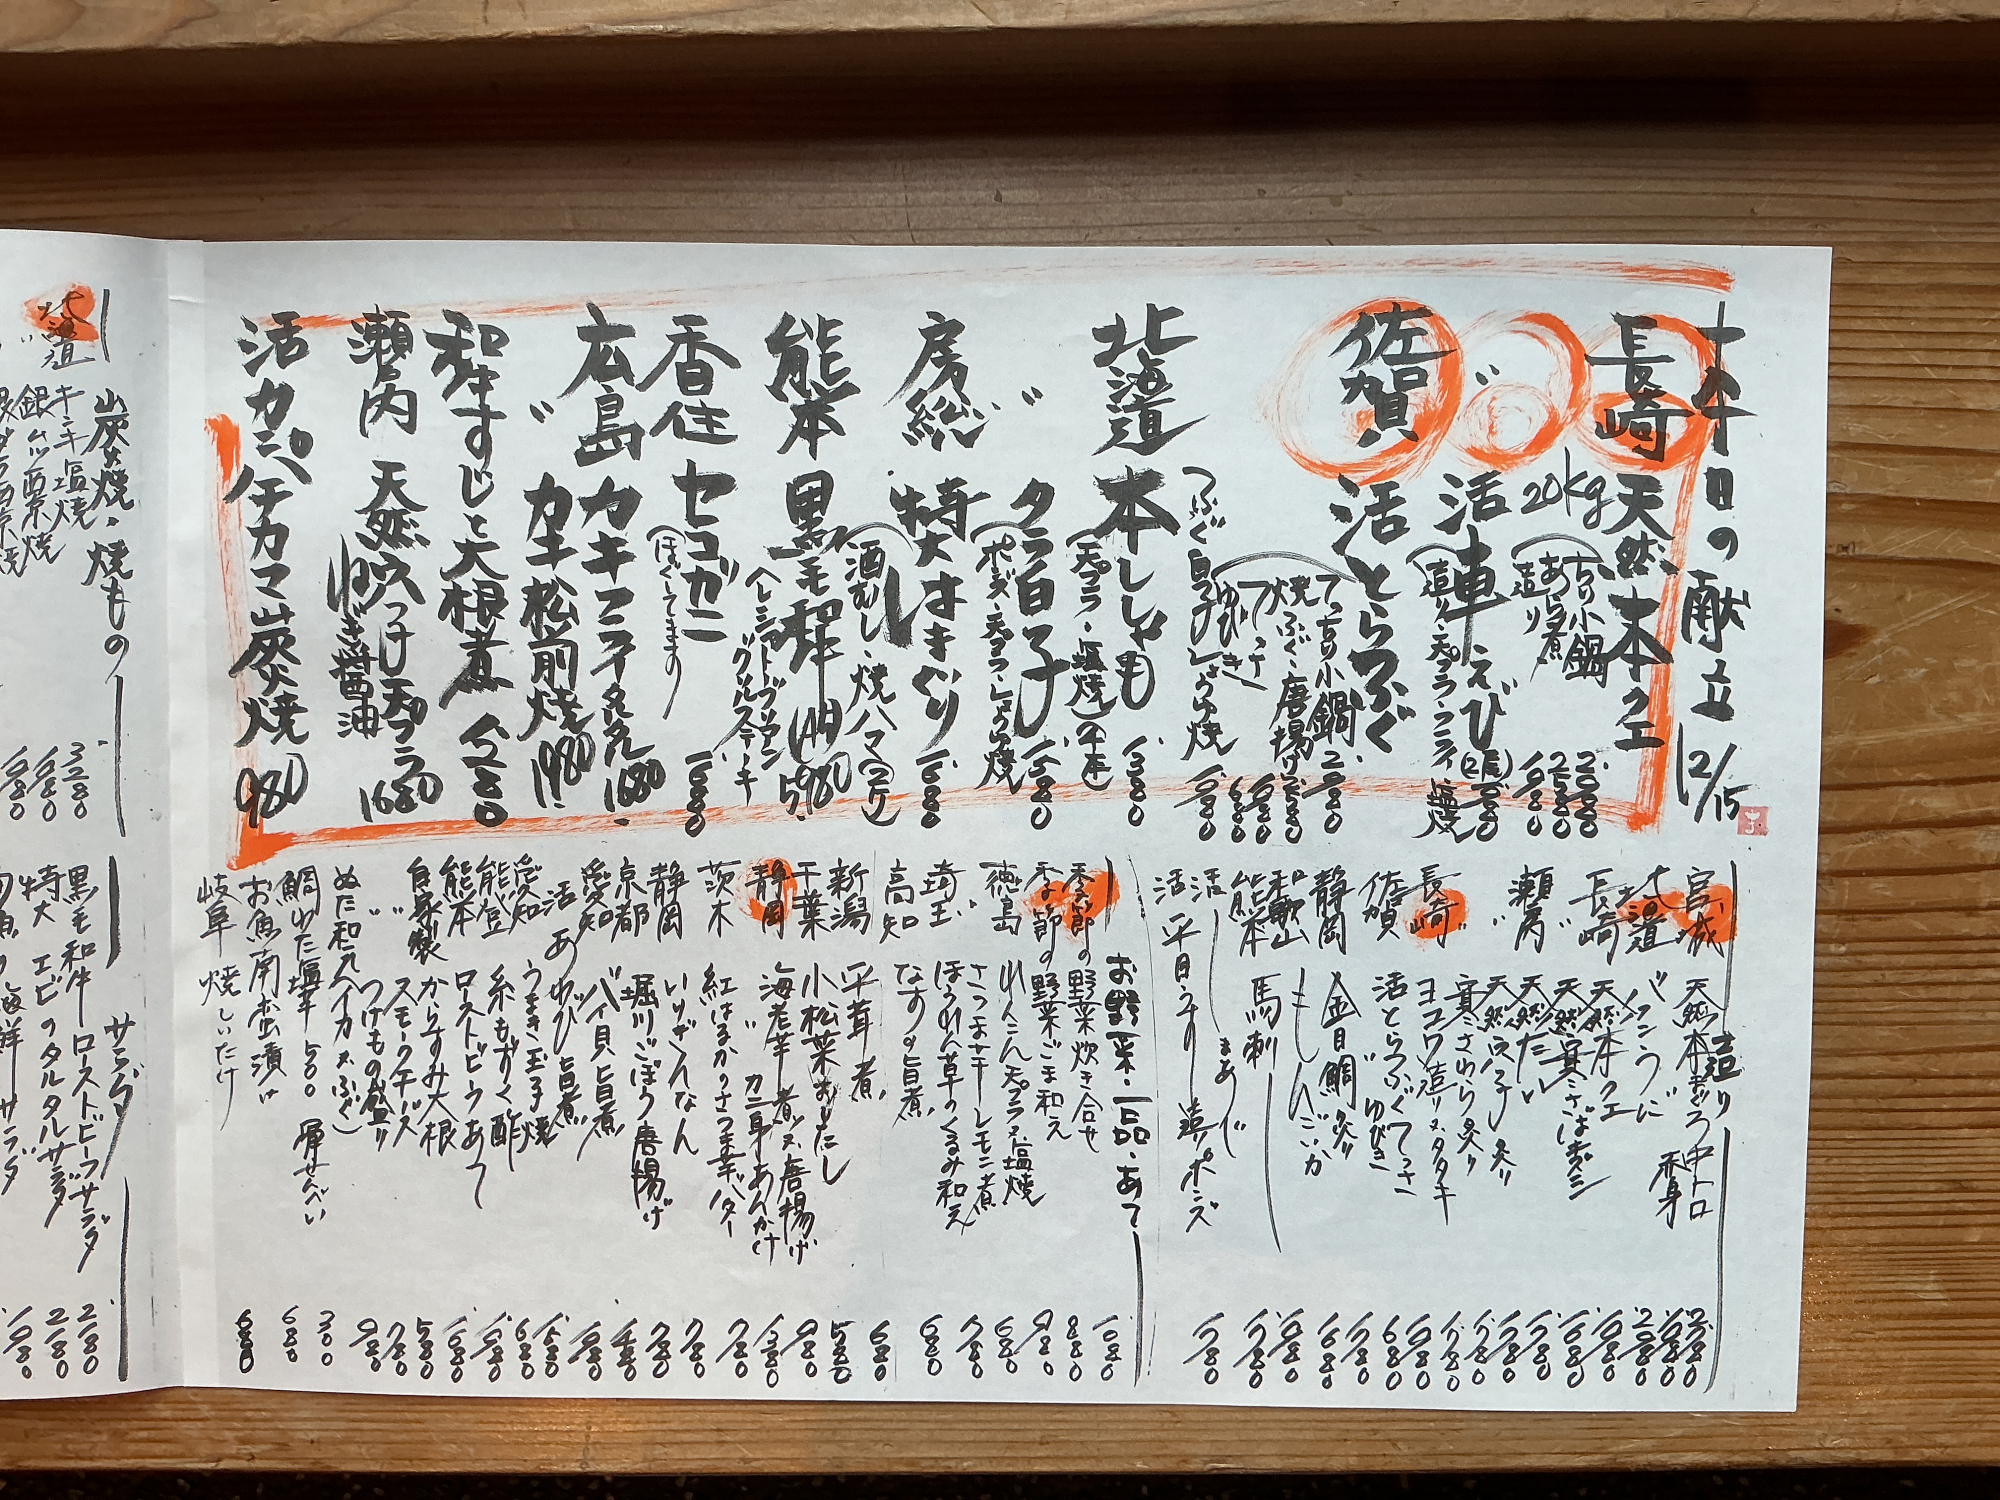 十五日の献立 12/15
長崎 天然本クエ 20kg
ちり小鍋 2980
あら煮 2580
造り 1980
〃 活車えび
(造り・天プラ・フライ・塩焼 (2尾) 1980
佐賀 活とらふぐ
てっちり小鍋 2980
焼ふぐ・唐揚げ 2580
てっさ 1980
ゆびき 680
つぶぐ白子しょうゆ焼 1980
北海道 本ししゃも
(天プラ・塩焼)(4本) 1380
〃 タラ白子
(ポン酢・天プラ・しょうゆ焼 1580
房総 特大はまぐり
(酒むし・焼ハマ(2ケ) 1680
熊本 黒毛和牛(A4) 5980
ヘレシャトーブリアン
グリルステーキ
香住 セコガニ 1980
(ほぐしてます
広島 カキフライタルタル 1680
〃 カキ松前焼 1980
和牛すじと大根煮 1280
瀬戸内 天然穴つけ天プラ 1680
ねぎ醤油
活カンパチカマ炭火焼 980
造り
宮城 天然本まぐろ 中トロ 2780
赤身 1980
北海道 バフンうに 2980
長崎 天然本クエ 1980
〃 天然寒さばきずし 1680
瀬戸内 天然たい 1780
〃 天然穴子 炙り 1780
長崎 寒さわら炙り 1780
〃 ヨコワ造り又タタキ 1980
佐賀 活とらふぐてっさ 1980
〃 ゆびき 680
静岡 金目鯛炙り 1780
和歌山 もんごいか 1680
熊本 馬刺 1980
活まあじ 1780
活平目うすり造りポンズ 1780
お野菜・一品・あて
季節の野菜炊き合せ 1080
季節の野菜ごま和え 880
徳島 れんこん天プラ又塩焼 980
〃 さつま芋レモン煮 680
埼玉 ほうれん草のくるみ和え 780
高知 なすの旨煮 680
平茸煮 680
新潟 小松菜おひたし 580
千葉 海老芋煮又唐揚げ 980
静岡 〃 カニ身あんかけ 1380
茨木 紅はるかのさつま芋バター 780
いりぎんなん 780
静岡 堀川ごぼう唐揚げ 780
京都 バイ貝旨煮 1480
愛知 活あわび旨煮 1980
愛知 うまき玉子焼 1580
能登 糸もずく酢 680
熊本 ローストビーフあて 1980
〃 からすみ大根 1980
自家製 スモークチーズ 580
〃 つけもの盛り 780
ぬた和え(イカ・ふぐ) 980
鯛わた塩辛 500 海せんべい 300
お魚南蛮漬け 680
岐阜 焼しいたけ 680
炭火焼・焼もの
北海道 キンキ塩焼 3280
銀ムツ西京焼 1680
銀ダラ西京焼 1980
サラダ
黒毛和牛 ローストビーフサラダ 2180
特大 エビのタルタルサラダ 2180
海鮮サラダ 1980